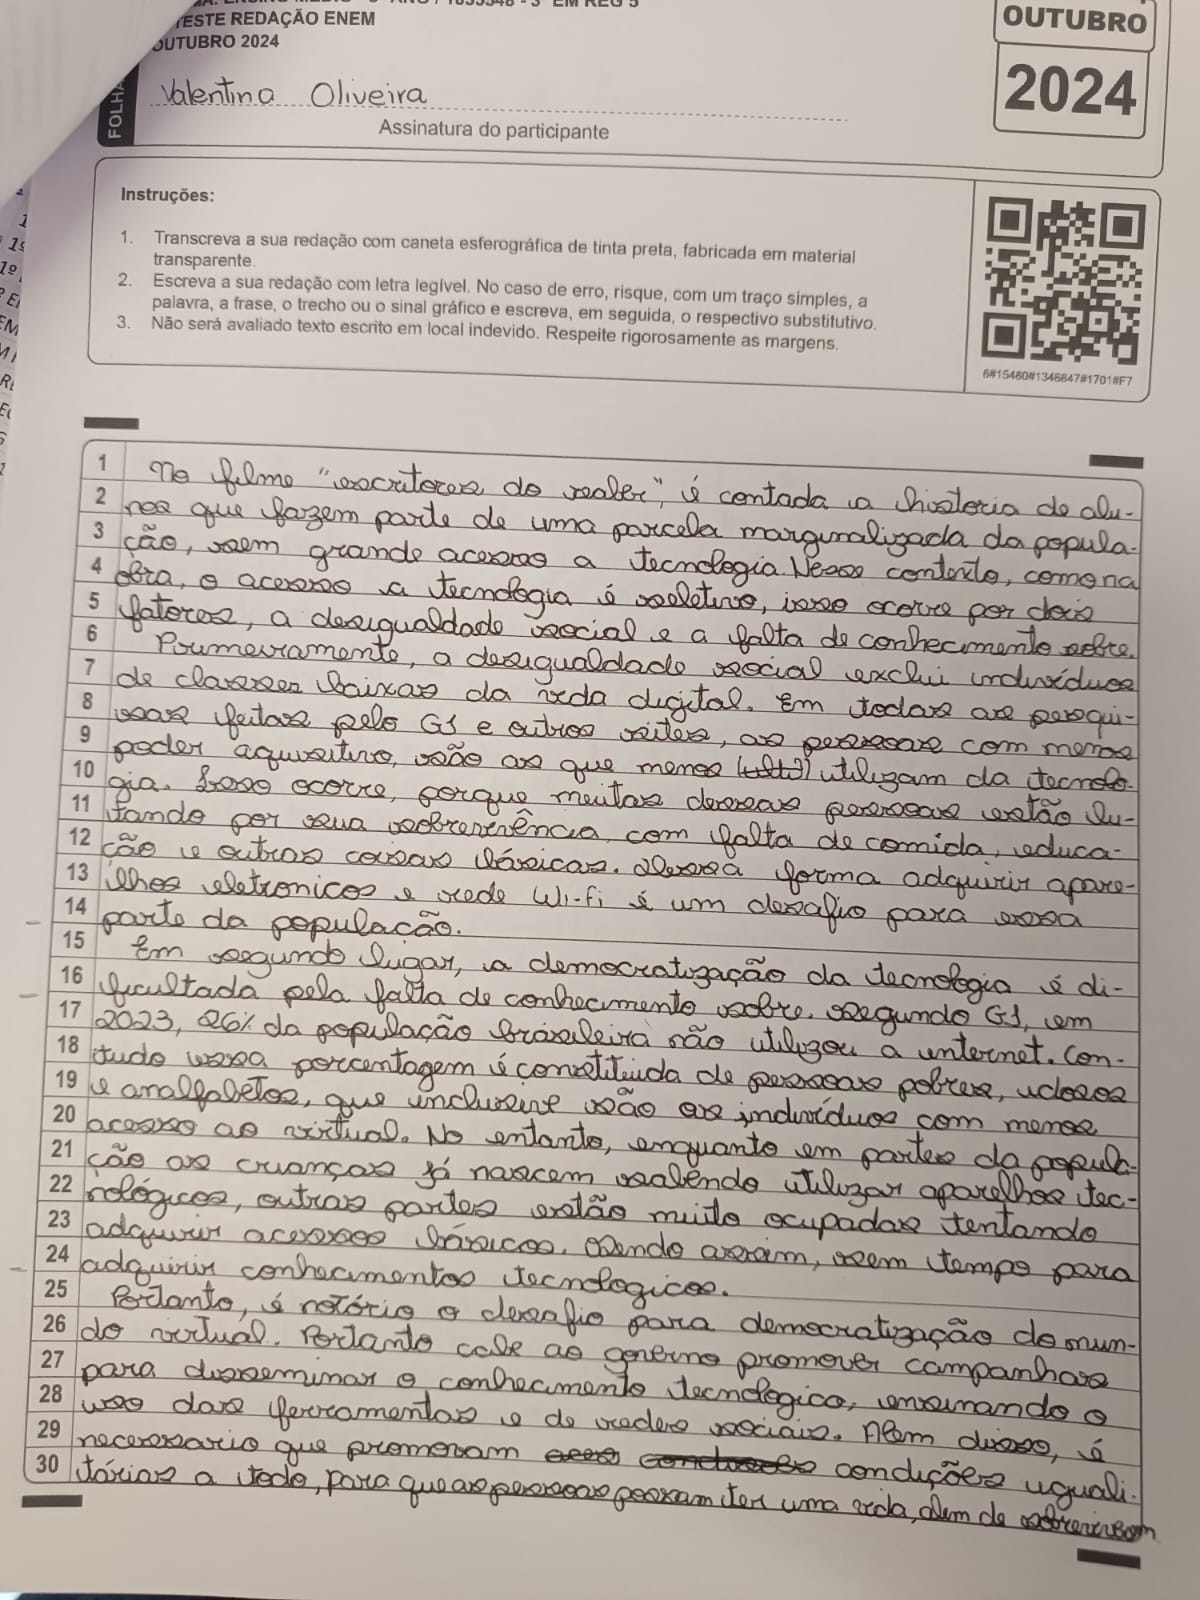 ENSINO MÉDIO - 3º ANO / 1855548 - 3º EM REG 5
TESTE REDAÇÃO ENEM
OUTUBRO 2024
FOLHA
Valentina Oliveira
Assinatura do participante
OUTUBRO
2024
Instruções:
1. Transcreva a sua redação com caneta esferográfica de tinta preta, fabricada em material
transparente.
2. Escreva a sua redação com letra legível. No caso de erro, risque, com um traço simples, a
palavra, a frase, o trecho ou o sinal gráfico e escreva, em seguida, o respectivo substitutivo.
3. Não será avaliado texto escrito em local indevido. Respeite rigorosamente as margens.
6#15480#1346847#1701#F7
1 No filme "escritores do saber", é contada a historia de alu-
2 nos que fazem parte de uma parcela marginalizada da popula-
3 ção, sem grande acesso a tecnologia. Nesse contexto, como na
4 obra, o acesso a tecnologia é seletivo, isso ocorre por dois
5 fatores, a desigualdade social e a falta de conhecimento sobre.
6 Primeiramente, a desigualdade social exclui indivíduos
7 de classes baixas da vida digital. Em todas as pesqui-
8 sas feitas pelo G1 e outros sites, as pessoas com menos
9 poder aquisitivo, são as que menos utilizam da tecnolo-
10 gia. Isso ocorre, porque muitas dessas pessoas estão lu-
11 tando por sua sobrevivência, com falta de comida, educa-
12 ção e outras coisas básicas. Dessa forma adquirir apare-
13 lhos eletronicos e rede Wi-fi é um desafio para essa
14 parte da população.
15 Em segundo lugar, a democratização da tecnologia é di-
16 ficultada pela falta de conhecimento sobre. Segundo G1, em
17 2023, 26% da população brasileira não utilizou a internet. Con-
18 tudo essa porcentagem é constituida de pessoas pobres, idosos
19 e analfabetos, que inclusive são os indivíduos com menos
20 acesso ao virtual. No entanto, enquanto em partes da popula-
21 ção as crianças já nascem sabendo utilizar aparelhos tec-
22 nológicos, outras partes estão muito ocupadas tentando
23 adquirir acessos básicos. Sendo assim, sem tempo para
24 adquirir conhecimentos tecnologicos.
25 Portanto, é notório o desafio para democratização do mun-
26 do virtual. Portanto cabe ao governo promover campanhas
27 para disseminar o conhecimento tecnologico, ensinando o
28 uso das ferramentas e de redes sociais. Alem disso, é
29 necessario que promovam condições iguali-
30 tárias a todo, para que as pessoas possam ter uma vida, alem de sobreviverem